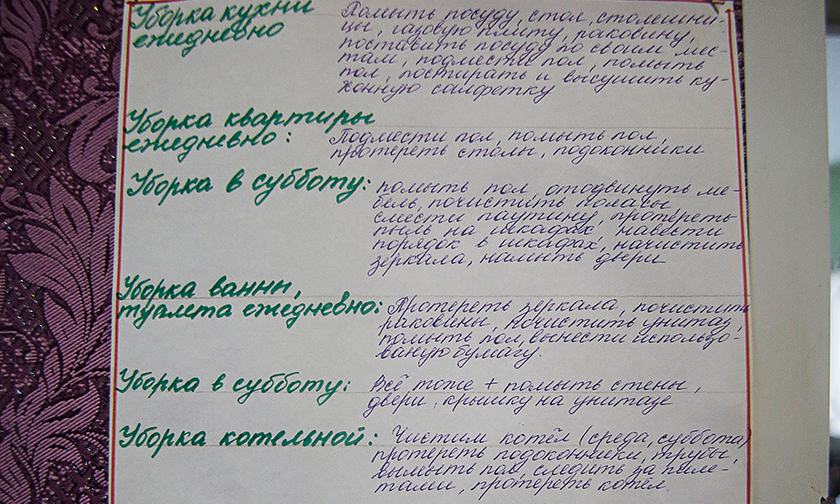 Уборка кухни
ежедневно
Помыть посуду, стол, столешни-
цы, газовую плиту, раковину,
поставить посуду по своим мес-
там, подмести пол, помыть
пол, постирать и высушить ку-
хонную салфетку
Уборка квартиры
ежедневно:
Подмести пол, помыть пол,
протереть столы, подоконники
Уборка в субботу: помыть пол, отодвинуть ме-
бель, почистить паласы
смести паутину, протереть
пыль на шкафах, навести
порядок в шкафах, начистить
зеркала, намыть двери
Уборка ванны,
туалета ежедневно: Протереть зеркала, почистить
раковины, почистить унитаз,
помыть пол, вынести использо-
ваную бумагу.
Уборка в субботу: Всё тоже + помыть стены,
двери, крышку на унитазе
Уборка котельной: Чистим котёл (среда, суббота)
протереть подоконники, трубы,
вымыть пол, следить за пале-
тами, протереть котёл.